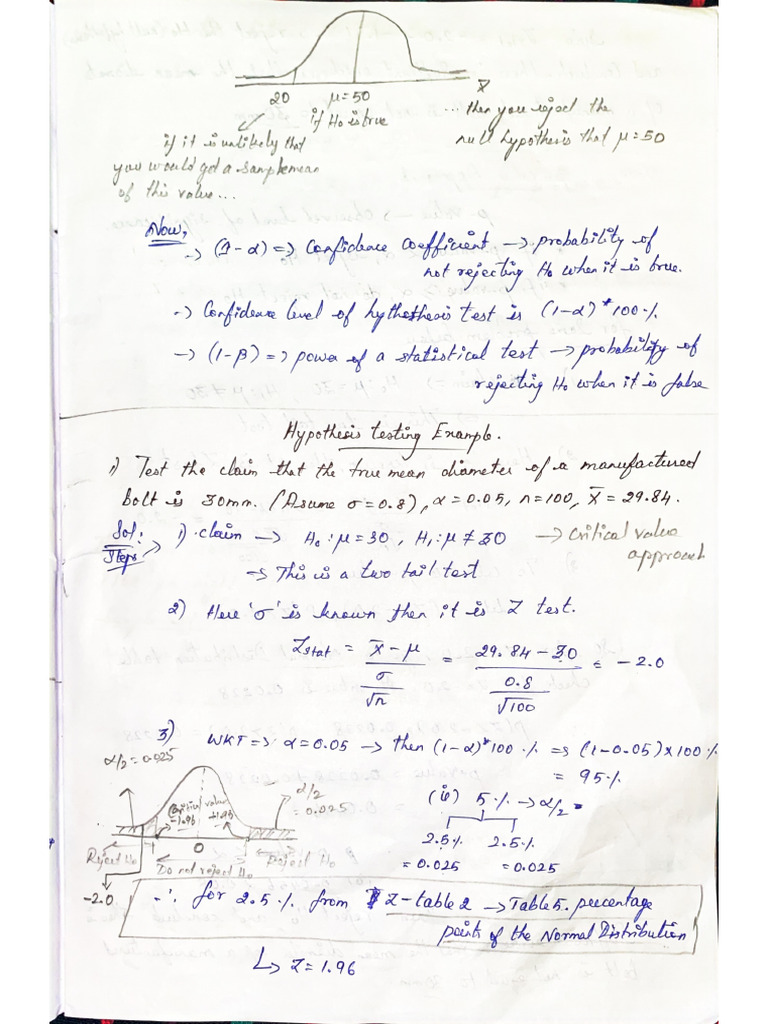 X̄
20 μ=50
if H₀ is true
if it is unlikely that
you would get a sample mean
of this value...
... then you reject the
null hypothesis that μ=50
Now,
→ (1-α) => Confidence Coefficient → probability of
not rejecting H₀ when it is true.
→ Confidence level of hythothesis test is (1-α)*100%
→ (1-β) => power of a statistical test → probability of
rejecting H₀ when it is false
Hypothesis testing Example.
1) Test the claim that the true mean diameter of a manufactured
bolt is 30mm. (Asume σ=0.8), α=0.05, n=100, X̄ = 29.84.
Sol:
Steps
1) claim → H₀: μ=30, H₁: μ≠30 → Critical value
approach
→ This is a two tail test
2) Here 'σ' is known then it is Z test.
Zstat = X̄-μ / σ/√n = 29.84-30 / 0.8/√100 = -2.0
3) WKT => α=0.05 → then (1-α)*100% => (1-0.05)×100%
= 95%
α/2=0.025
α/2
=0.025
Critical value
-1.96 +1.96
0
Reject H₀ Do not reject H₀ Reject H₀
-2.0
(ie) 5% → α/2 =
2.5% 2.5%
=0.025 =0.025
∴ for 2.5% from Z-table 2 → Table 5. percentage
point of the Normal Distribution
↳ Z=1.96